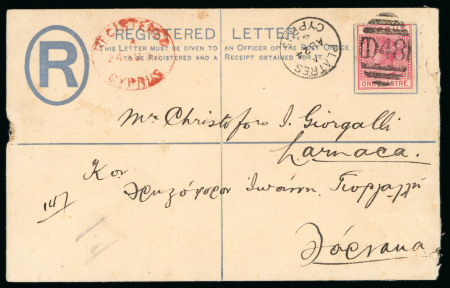 REGISTERED LETTER.
THIS LETTER MUST BE GIVEN TO AN OFFICER OF THE POST OFFICE
TO BE REGISTERED AND A RECEIPT OBTAINED FOR IT
R
REGISTERED
CYPRUS
PLATRES
CYPRUS
D48
ONE PIASTRE
Mr Christoforo I. Giorgalli
Larnaca.
Κον
Χριστόφορον Ἰωάννη Γιοργαλλῆ
147
Λάρνακα